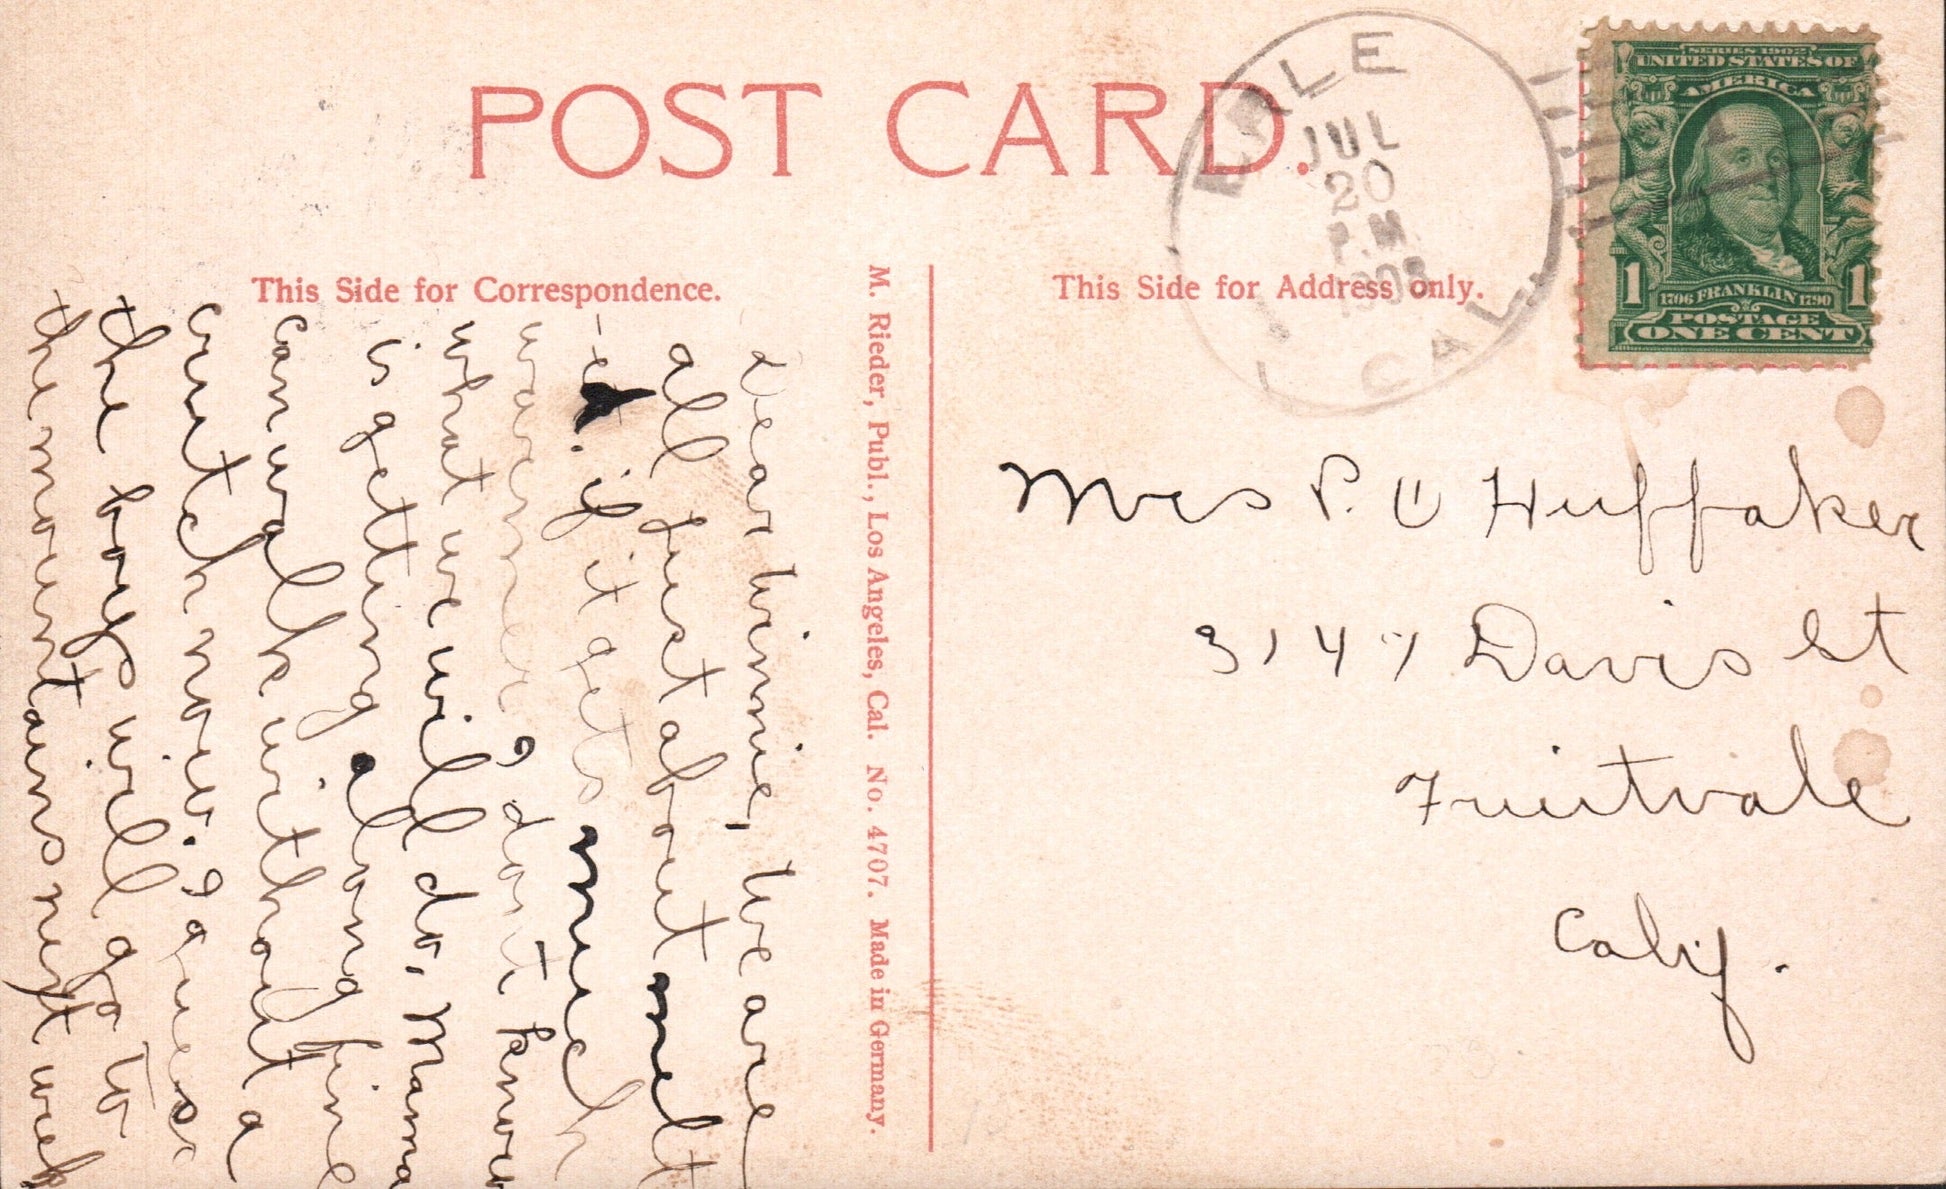 POST CARD.
This Side for Correspondence.
This Side for Address only.
EARLE
JUL
20
P.M.
1908
CAL.
SERIES 1902
UNITED STATES OF
AMERICA
1 1
1706 FRANKLIN 1790
POSTAGE
ONE CENT
M. Rieder, Publ., Los Angeles, Cal. No. 4707. Made in Germany.
Dear Winnie, We are
all just about melt
-ed. if it gets much
warmer I don't know
what we will do, Mama
is getting along fine
can walk without a
crutch now. I guess
the boys will go to
the mountains next week
Mrs P. U Huffaker
3147 Davis St
Fruitvale
Calif.